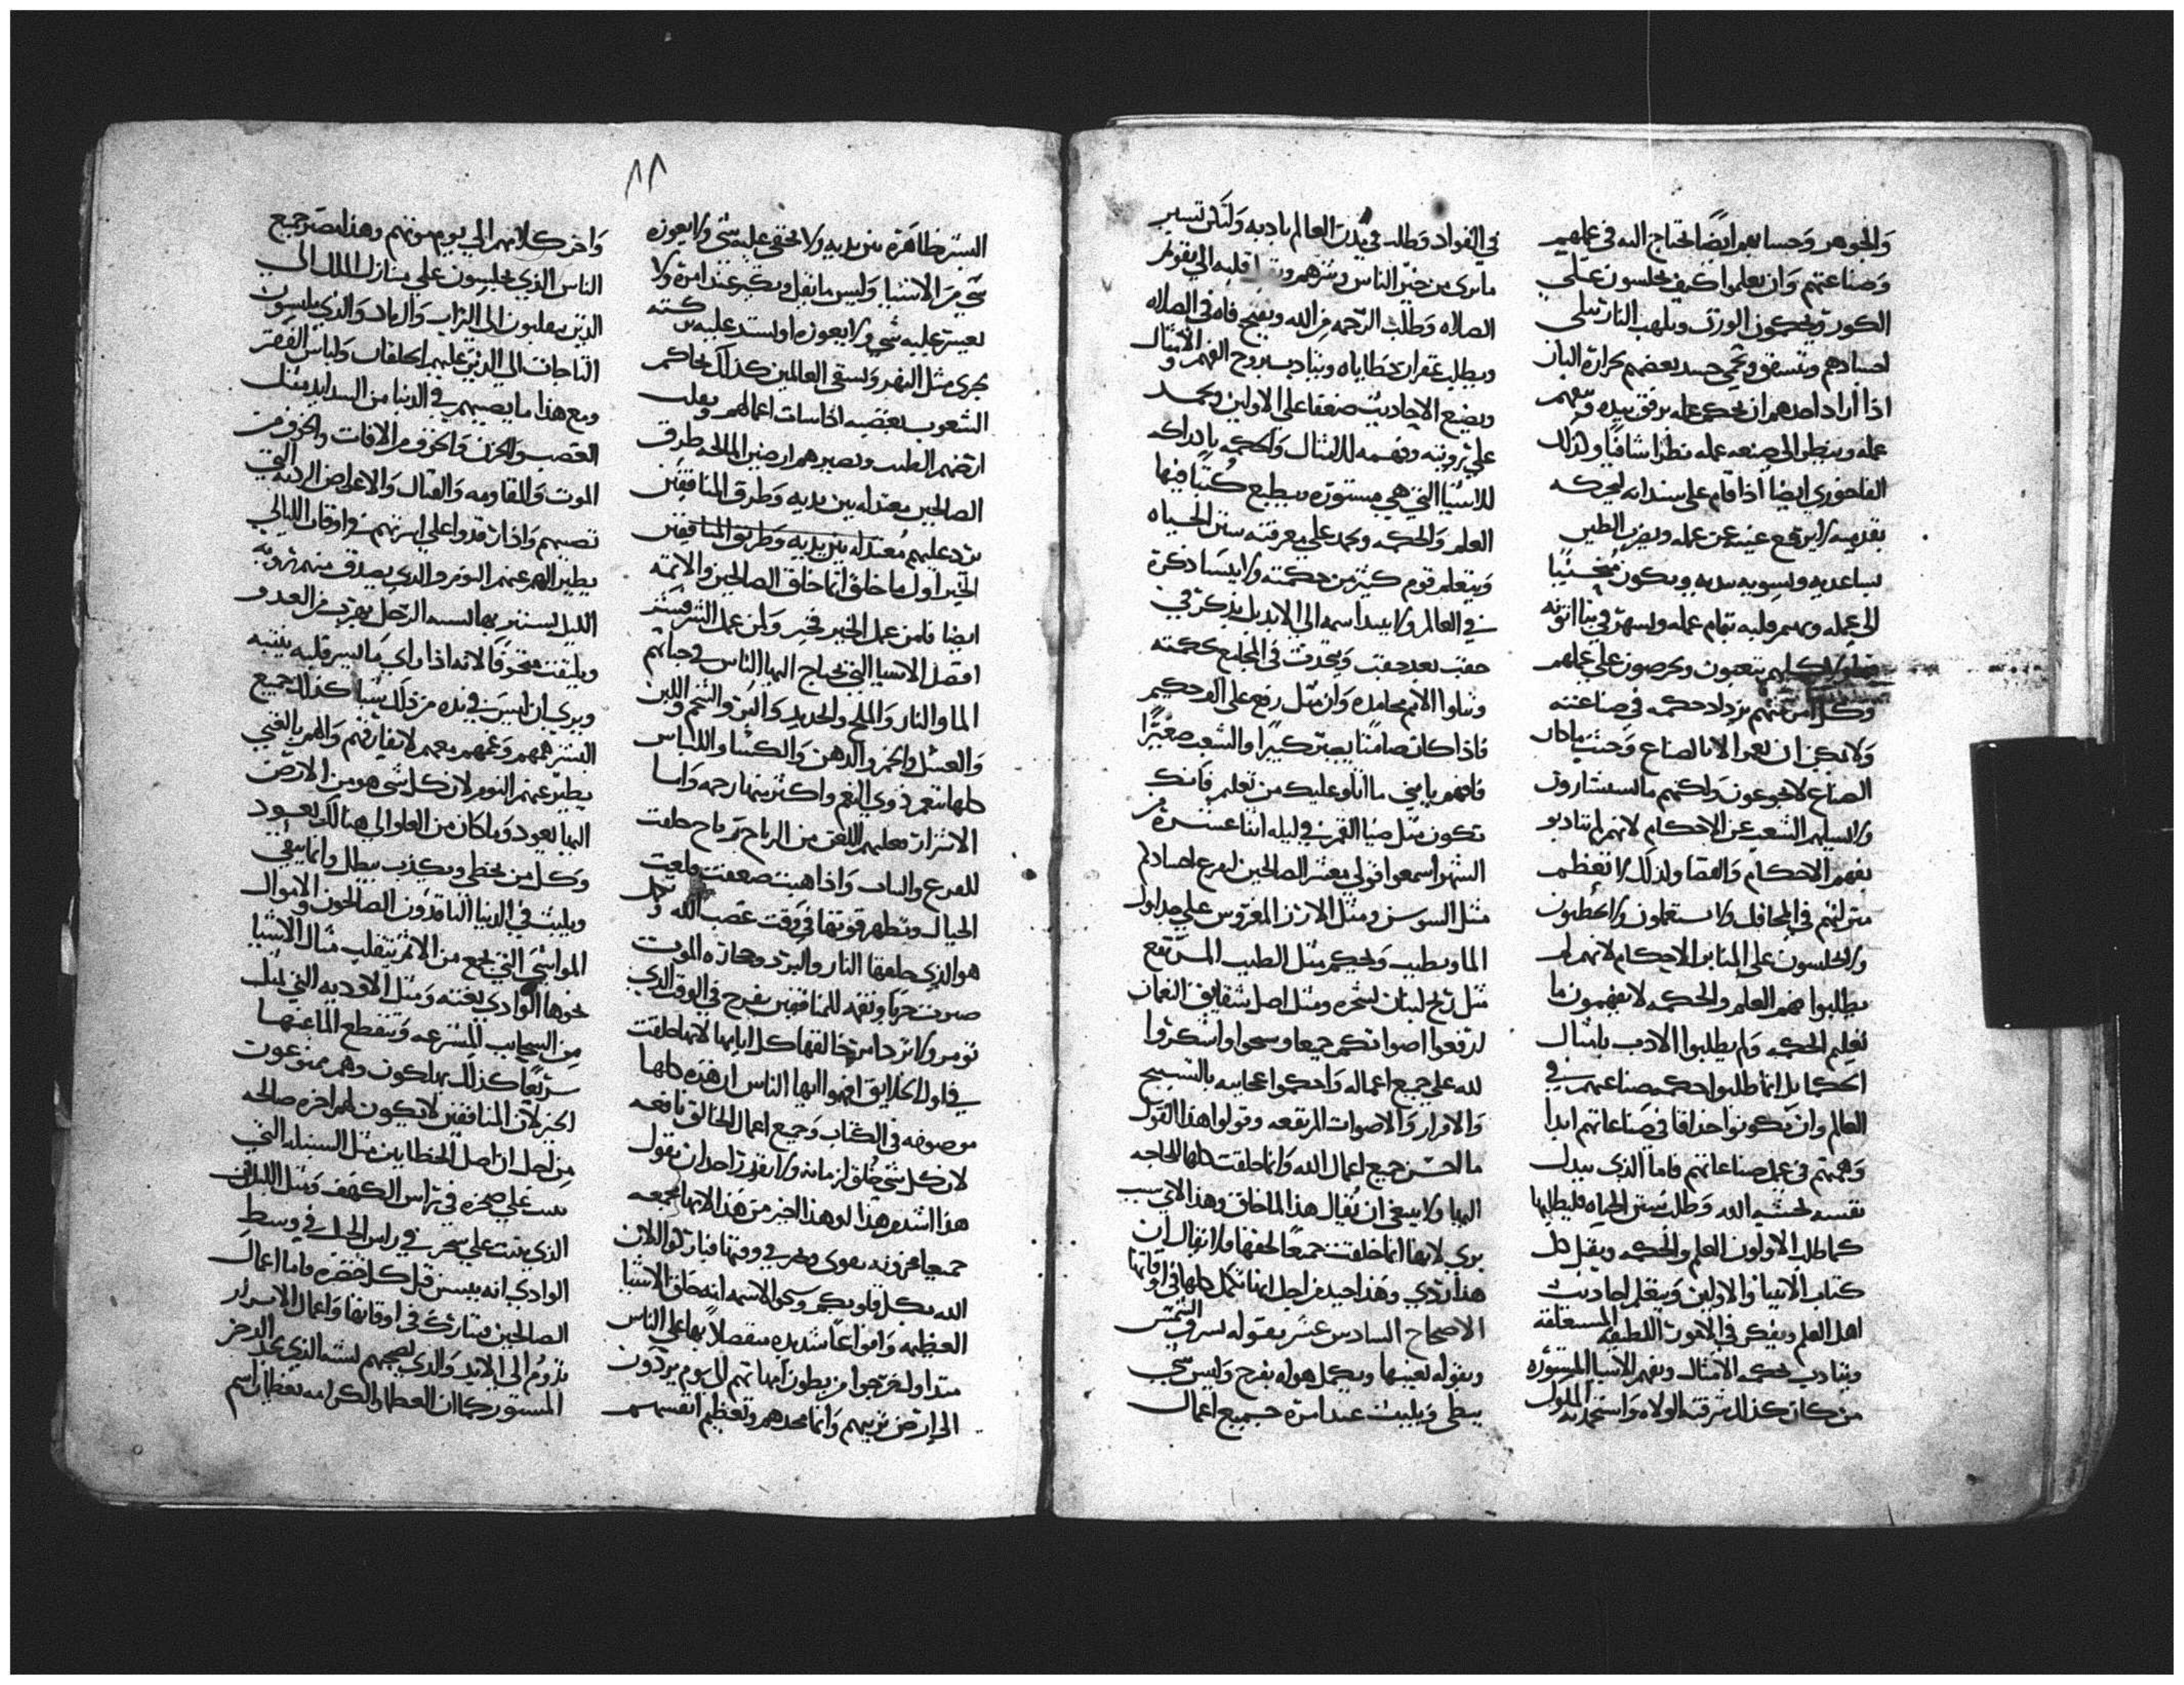 والجوهر وحسابهم ايضا يحتاج اليه في عملهم
وصناعتهم وان يعلموا كيف يجلسون علي
الكور ويحكمون الورق وبلهب النار تبلي
اجسادهم وتتشقق وتحمي جسد بعضهم بحرارة النار
اذا اراد احدهم ان يحكم عمله برفق بيده
عمله وينظر الي صنعه عمله نظرا شافيا وكذلك
الفاخوري ايضا اذا قام علي سندانه ليحركه
بقدميه لا يرتفع عينه عن عمله ويضرب الطين
بساعديه ويسويه بيديه ويكون منحنيا
الي عمله ويهتم قلبه بتمام عمله ويسهر في بنا اتونه
كلهم يتعبون ويحرصون علي عملهم
وكل امر منهم يزداد حكمه في صناعته
ولا يمكن ان يعمر الا بالصناع وحيث ما كان
الصناع لا يجوعون ولكنهم ما يستشارون
ولا يسايلهم الشعب عن الاحكام لانهم لم يتادبو
بفهم الاحكام والقضا ولذلك لا تعظم
منزلتهم في المحافل ولا يستعملون ولا يخطبون
ولا يجلسون علي المنابر الاحكام لانهم لم
يطلبوا فهم العلم والحكمه لا يفهمون ما
تعليم الحكمه ولم يطلبوا الادب بامثال
الحكما بل انما طلبوا حكمه صناعتهم في
العالم وان يكونوا حذاقا في صناعاتهم ابدا
وهمتهم في عمل صناعاتهم فاما الذي يبدل
نفسه لخشيه الله وطلب سنن الحياه فليطلبها
كما طلب الاولون العلم والحكمه ويقبل كل
كتاب الانبيا والاولين ويتعلم احاديث
اهل العلم ويفكر في الامور اللطيفه المستغلقه
ويتادب بحكمه الامثال ويفهم الاشيا المستوره
من كان كذلك شرفته الولاه واستخدمته الملوك
في الفواد وطلب في مدن العالم بادبه ولتكن تسير
ما يري من خير الناس وشرهم قلبه الي تقويم
الصلاه وطلب الرحمه من الله ويفتح فاه في الصلاه
ويطلب غفران خطاياه ويتادب بروح الفهم والامثال
ويضع الاحاديث ضعفا علي الاولين ويحمد
علي ترويته وفهمه للامثال والحكمه بادراكه
للاشيا التي هي مستوره سيطبع كتبا فيها
العلم والحكمه ويحمد علي معرفته سنن الحياه
ويتعلم قوم كثير من حكمته ولا ينسا ذكره
في العالم ولا يبيد اسمه الي الابد بل يذكر في
حقب بعد حقب ويتحدث في المجامع بحكمته
وتتلوا الامم محامده وان مثل رفع علي الف حكيم
فاذا كان صامتا يصير كبيرا والشعب صغيرا
فافهم يا بني ما اتلو عليك من تعليم فانك
تكون مثل ضيا القمر في ليله اثنا عشره من
الشهر اسمعوا قولي معشر الصالحين لتفرع اجسادكم
مثل السوسن ومثل الارز المغروس علي جداول
الما ويطيب ريحكم مثل الطيب المرتفع
مثل ريح لبنان بشجره ومثل اصل شقايق النعمان
لترفعوا اصواتكم جميعا وسبحوا واشكروا
لله علي جميع اعماله واحكموا عجايبه بالتسبيح
والاقرار والاصوات المرتفعه وقولوا هذا القول
ما احسن جميع اعمال الله وانما خلقت كلها للحاجه
اليها ولا ينبغي ان يقال هذا لماذا خلق وهذا لاي سبب
يري لانها انما خلقت جميعا لحقها فلا يقال ان
هذا ردي وهذا جيد من اجل انها تكمل كلها في اوقاتها
الاصحاح السادس عشر بقوله تشرق الشمس
وبقوله تغيبها ويكمل هواه بفرح وليس شي
يبطي ويلبث عند امره جميع اعمال
٨٨
البشر ظاهرة بين يديه ولا يخفي عليه شي ولا يعوزه
شي من الاشيا وليس ما يقل ويكثر عند امره ولا
يعسر عليه شي ولا يعوزه او يشتد عليه بركته
تجري مثل النهر وتسقي العالمين كذلك تحاكم
الشعوب بغضبه اذا سات اعمالهم ويقلب
ارضهم الطيب وتصير هم ارضين المالحه طرق
الصالحين معتدله بين يديه وطرق المنافقين
ترد عليهم معتدله بين يديه وطريق المنافقين
الخير اول ما خلق انما خلق الصالحين والاتمه
ايضا فامن عمل الخير فخير ولمن عمل الشر فبشر
افضل الاشيا التي يحتاج اليها الناس في حياتهم
الما والنار والملح والحديد والبر والشحم واللبن
والعسل والخمر والدهن والكسا واللباس
كلها تنعم ذوي النعم واكثر منها رحمه واما
الاشرار فعليهم اللعن من الرياح رياح خلقت
للفزع والباس واذا هبت ضعفت وقلعت
الجبال وتظهر قوتها في وقت غضب الله وتحل
هو الذي خلقها النار والبرد وحجاره الموت
صوت حربا ونقمه للمنافقين يفرح في الوقت الذي
تومر ولا تزداد من خالقها كل ايامها لانها خلقت
في اول الخلايق افهموا ايها الناس ان هذه كلها
موصوفه في الكتاب وجميع اعمال الخالق نافعه
لان كل شي خلق لزمانه ولا يقدر احد ان يقول
هذا اشد من هذا او هذا اخير من هذا لانها مجمعه
جميعا مخزونه تقوي وتجري في وقتها فباركوا الان
الله بكل قلوبكم وسبحوا لاسمه انه خلق الاشيا
العظيمه وانواعا شديده منفصلا بها علي الناس
منذ اول خرجوا من بطون امهاتهم الي يوم يردون
الي ارض تربهم وانما مجدهم وتعظيم انفسهم
واخر كلامهم الي يوم موتهم وهذا مصير جميع
الناس الذي يجلسون علي منازل الملك الي
الذين ينقلبون الي التراب والرماد والذي يلبسون
التاجات الي الذين عليهم الخلقان ولباس الفقر
ومع هذا ما يصيبهم في الدنيا من الشدايد مثل
الغضب والحزن والخوف من الافات والخوف من
الموت والمقاومه والقتال والاعراض الرديه التي
تصيبهم واذا رقدوا علي اسرتهم في اوقات الليالي
يطير الهم عنهم النوم والذي يصدق منهم بروية
الليل يستتر بها يشبه الرجل يهرب من العدو
ويلتفت متخوفا لانه اذا راي ما يسر قلبه ينتبه
ويري ان ليس في يده من ذلك شيا كذلك جميع
البشر همهم وغمهم معهم لا يفارقهم والهم بالغني
يطير عنهم النوم لان كل شي هو من الارض
اليها يعود وما كان من العلو الي هنالك يعود
وكل من يخطي ويكذب يبطل وانما يبقي
ويلبث في الدنيا الناقدون الصالحون والاموال
المواشي التي تجمع من الاثم تنقلب مثال الاشيا
نحوها الوادي بغته ومثل الاوديه التي تمتلي
من السحايب المسرعه وينقطع الما عنها
سريعا كذلك يهلكون وهم ممنوعون
الخير لان المنافقين لا تكون لهم اخره صالحه
من اجل ان اصل الخطايين مثل السنبله التي
تنبت علي صخره في راس الكهف ومثل اللبلاب
الذي ينبت علي شجر في راس الجبل في وسط
الوادي انه ييبس قبل كل خضره فاما اعمال
الصالحين فتبارك في اوقاتها واعمال الابرار
تدوم الي الابد والذي يصحبهم يشبه الذي يجد الدخر
المستور كما ان العطا والكرامه تعطيان اسم